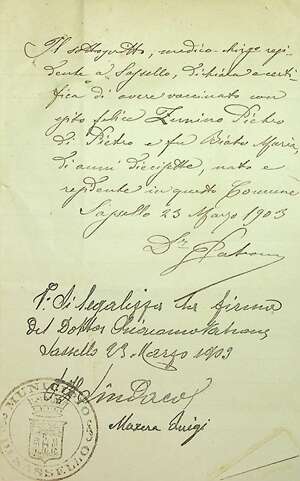 Il sottoscritto, medico-chirurgo resi
dente a Sassello, dichiara e certi
fica di avere vaccinato con
esito felice Zunino Pietro
di Pietro e fu Maria,
di anni diecisette, nato e
residente in questo Comune
Sassello 23 Marzo 1903
Dr
V. Si legalizza la firma
del Dottor Giacomo
Sassello 23 Marzo 1903
Il Sindaco
Luigi
MUNICIPIO DI SASSELLO